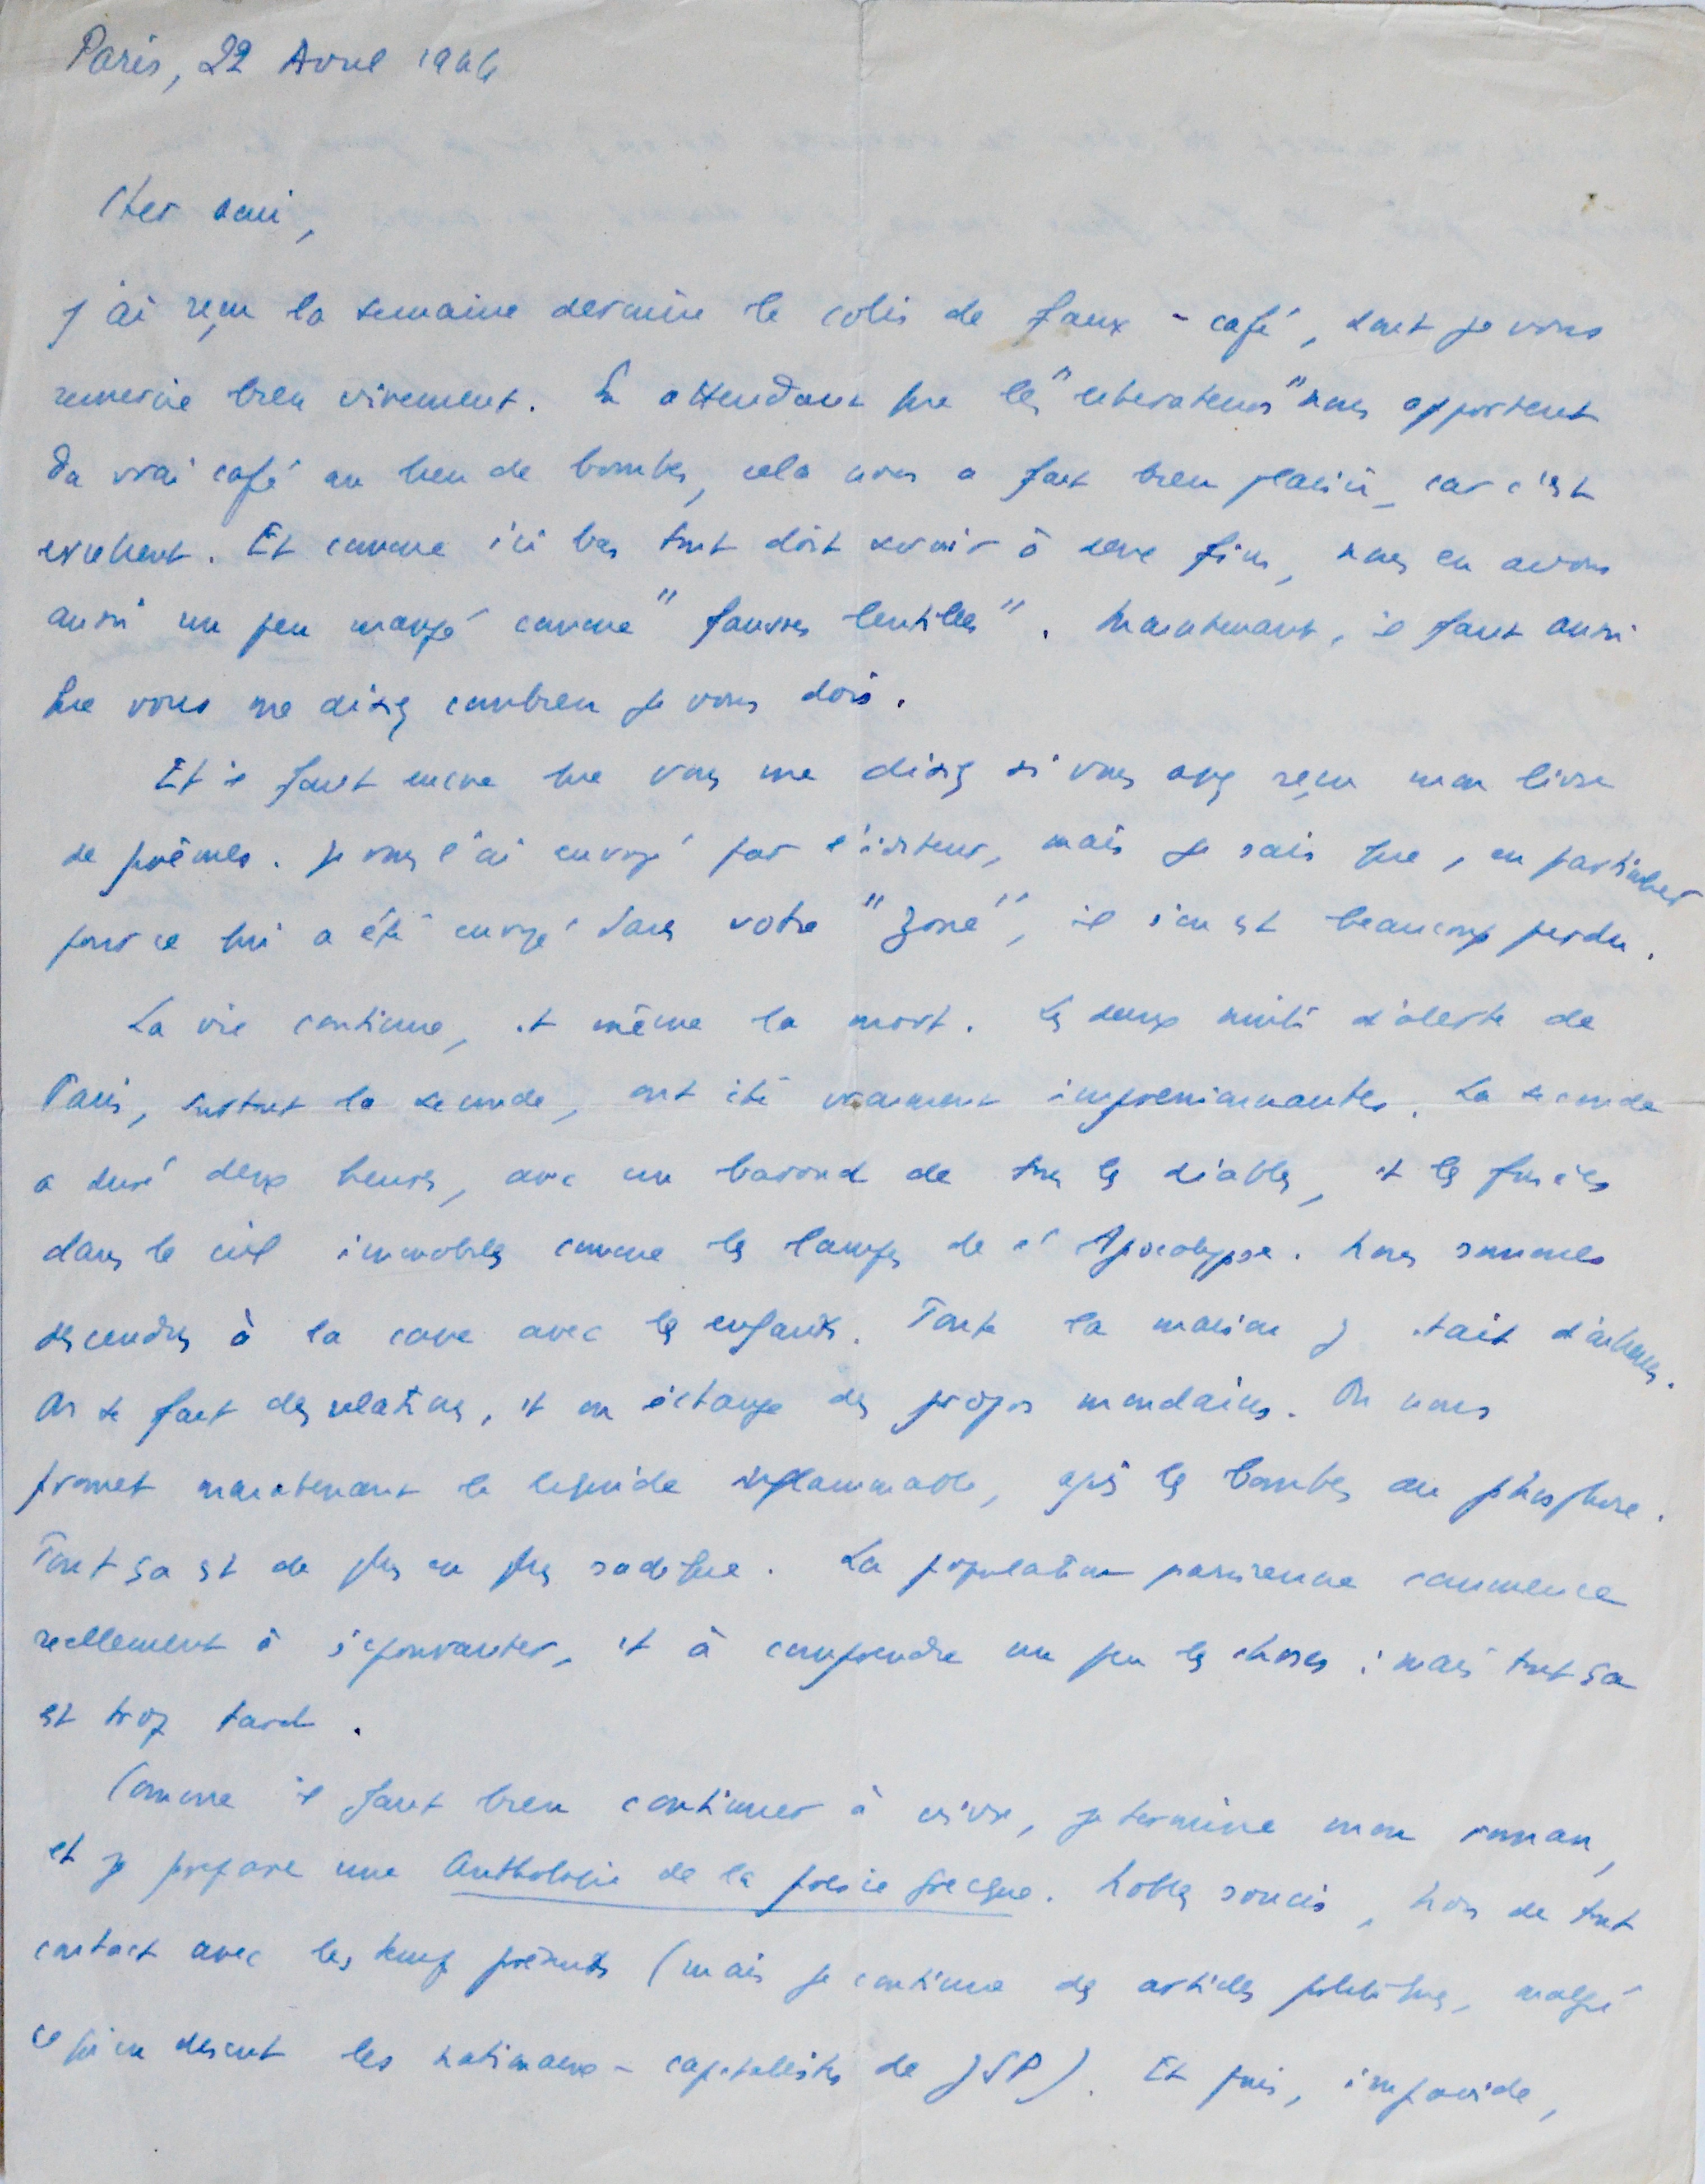 Paris, 22 Avril 1944
Cher ami,
J'ai reçu la semaine dernière le colis de faux-café, dont je vous
remercie bien vivement. En attendant que les "libérateurs" nous apportent
du vrai café au lieu de bombes, cela nous a fait bien plaisir, car c'est
excellent. Et comme ici bas tout doit servir à deux fins, nous en avons
aussi un peu mangé comme "fausses lentilles". Maintenant, il faut aussi
que vous me disiez combien je vous dois.
Et il faut encore que vous me disiez si vous avez reçu mon livre
de poèmes. Je vous l'ai envoyé par l'éditeur, mais je sais que, en particulier
pour ce qui a été envoyé dans votre "zone", il s'en est beaucoup perdu.
La vie continue, et même la mort. Les deux nuits d'alerte de
Paris, surtout la seconde, ont été vraiment impressionnantes. La seconde
a duré deux heures, avec un barouf de tous les diables, et les fusées
dans le ciel immobiles comme les lampes de l'Apocalypse. Nous sommes
descendus à la cave avec les enfants. Toute la maison y était d'ailleurs.
On se fait des relations, et on échange des propos mondains. On nous
promet maintenant le liquide inflammable, après les bombes au phosphore.
Tout ça est de plus en plus sadique. La population parisienne commence
reellement à s'épouvanter, et à comprendre un peu les choses : mais tout ça
est trop tard.
Comme il faut bien continuer à vivre, je termine mon roman,
et je prépare une Anthologie de la poésie grecque. Nobles soucis, hors de tout
contact avec les temps présents (mais je continue des articles politiques, malgré
ce qu'en disent les nationaux-capitalistes de JSP). Et puis, impavide,